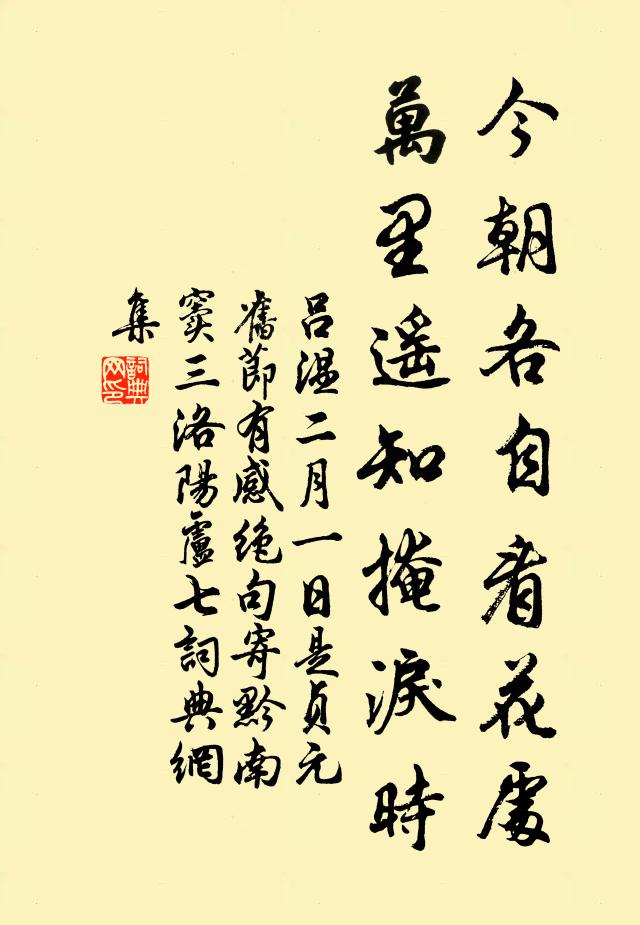 今朝各自看花處
萬里遥知掩淚時
吕温二月一日是貞元
舊節有感絶句寄黔南
竇三洛陽盧七詞典網
集
詞典网印